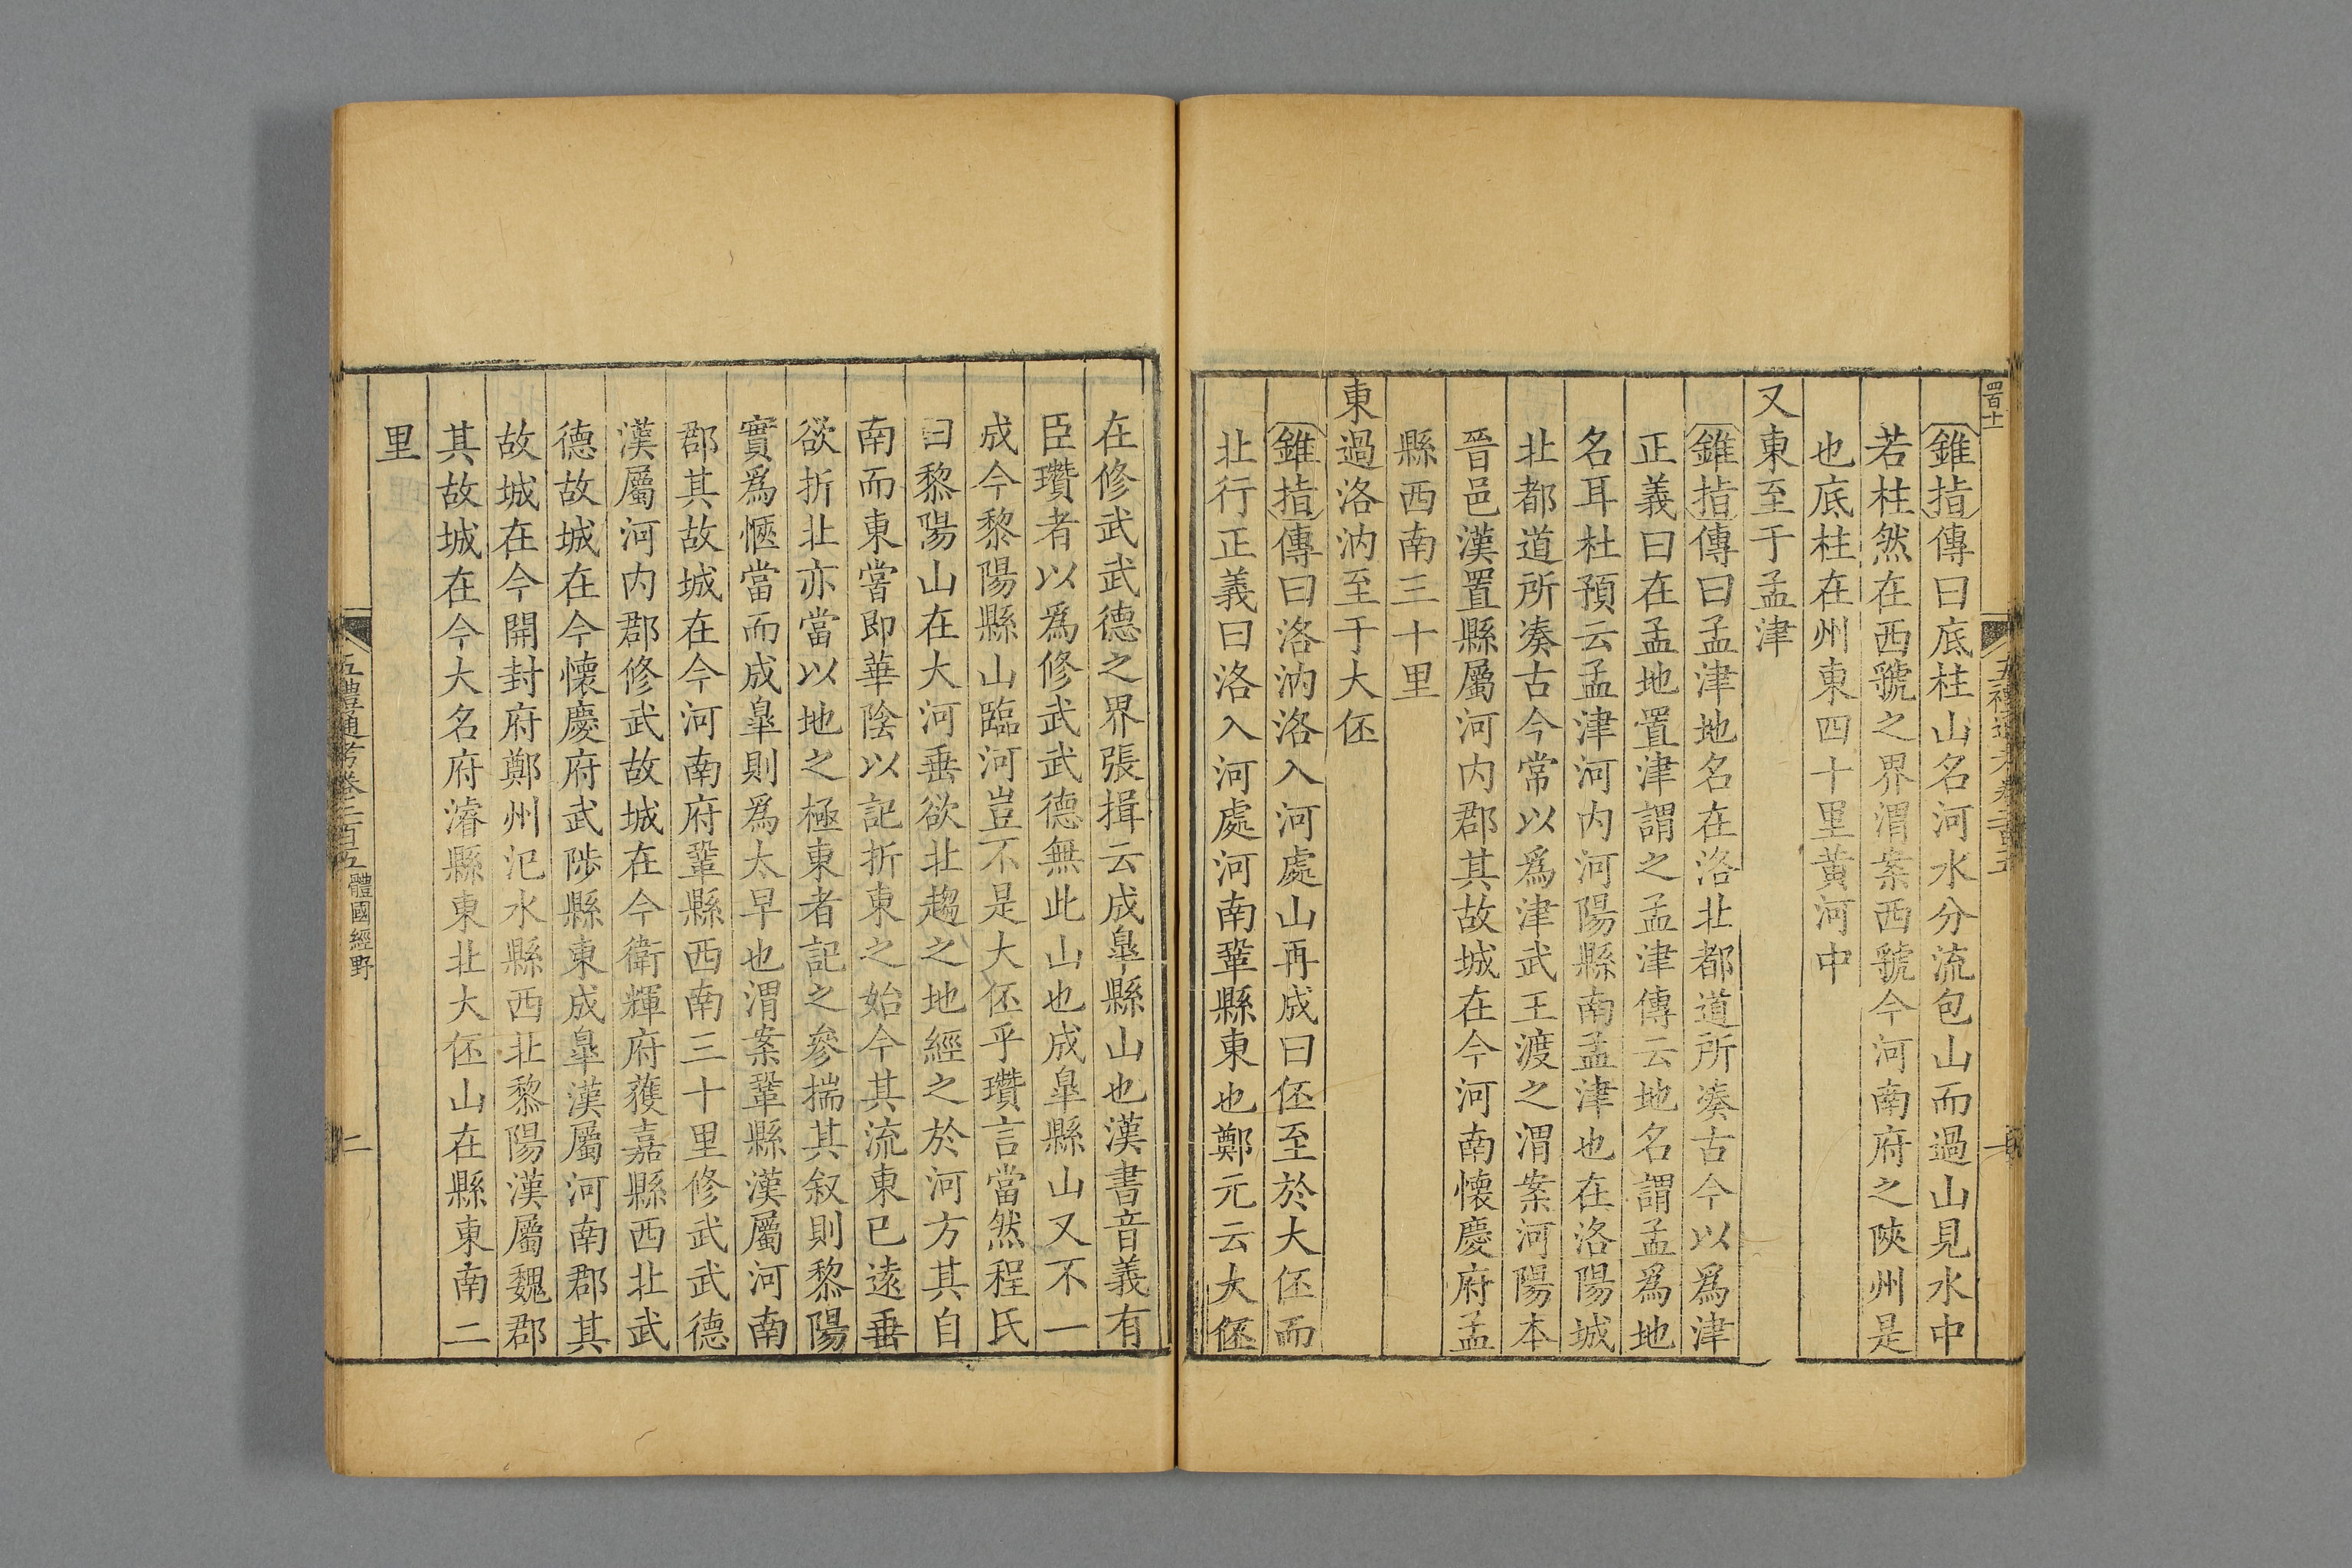 四百十
五禮通考卷二百五
錐指傳曰底柱山名河水分流包山而過山見水中
若柱然在西虢之界渭案西虢今河南府之陝州是
也底柱在州東四十里黃河中
又東至于孟津
錐指傳曰孟津地名在洛北都道所湊古今以爲津
正義曰在孟地置津謂之孟津傳云地名謂孟爲地
名耳杜預云孟津河内河陽縣南孟津也在洛陽城
北都道所湊古今常以爲津武王渡之渭案河陽本
晉邑漢置縣屬河内郡其故城在今河南懷慶府孟
縣西南三十里
東過洛汭至于大伾
錐指傳曰洛汭洛入河處山再成曰伾至於大伾而
北行正義曰洛入河處河南鞏縣東也鄭元云大伾
在修武武德之界張揖云成臯縣山也漢書音義有
臣瓚者以爲修武武德無此山也成臯縣山又不一
成今黎陽縣山臨河豈不是大伾乎瓚言當然程氏
曰黎陽山在大河垂欲北趨之地經之於河方其自
南而東嘗即華陰以記折東之始今其流東已遠垂
欲折北亦當以地之極東者記之參揣其叙則黎陽
實爲愜當而成臯則爲太早也渭案鞏縣漢屬河南
郡其故城在今河南府鞏縣西南三十里修武武德
漢屬河内郡修武故城在今衛輝府獲嘉縣西北武
德故城在今懷慶府武陟縣東成臯漢屬河南郡其
故城在今開封府鄭州汜水縣西北黎陽漢屬魏郡
其故城在今大名府濬縣東北大伾山在縣東南二
里
五禮通考卷二百五 體國經野
二